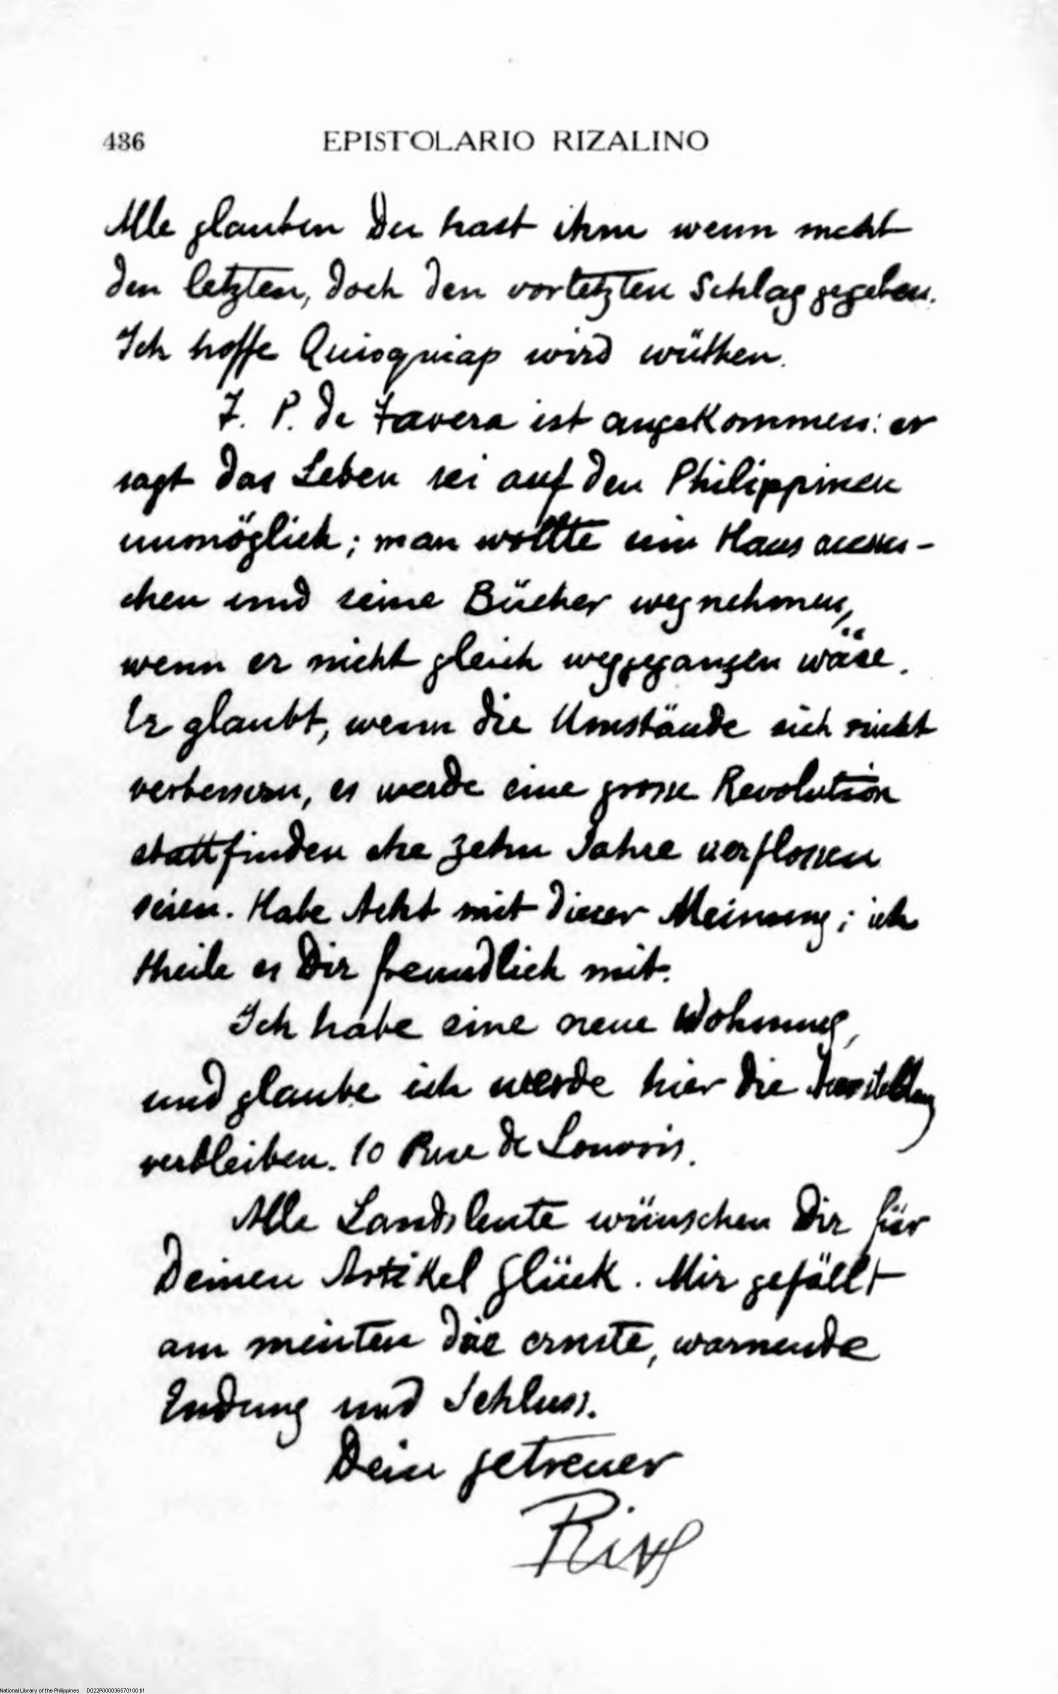 436 EPISTOLARIO RIZALINO
Alle glauben Du hast ihm wenn nicht
den letzten, doch den vorletzten Schlag gegeben.
Ich hoffe Quioquiap wird wüthen.
T. P. de Tavera ist angekommen: er
sagt das Leben sei auf den Philippinen
unmöglich; man wollte sein Haus aussu-
chen und seine Bücher wegnehmen,
wenn er nicht gleich weggegangen wäre.
Er glaubt, wenn die Umstände sich nicht
verbessern, es werde eine grosse Revolution
stattfinden ehe zehn Jahre verflossen
seien. Habe Acht mit dieser Meinung; ich
theile es Dir freundlich mit.
Ich habe eine neue Wohnung,
und glaube ich werde hier die Ausstellung
verbleiben. 10 Rue de Louvois.
Alle Landsleute wünschen Dir für
Deinen Artikel Glück. Mir gefällt
am meisten die ernste, warnende
Endung und Schluss.
Dein getreuer
Rizal
National Library of the Philippines